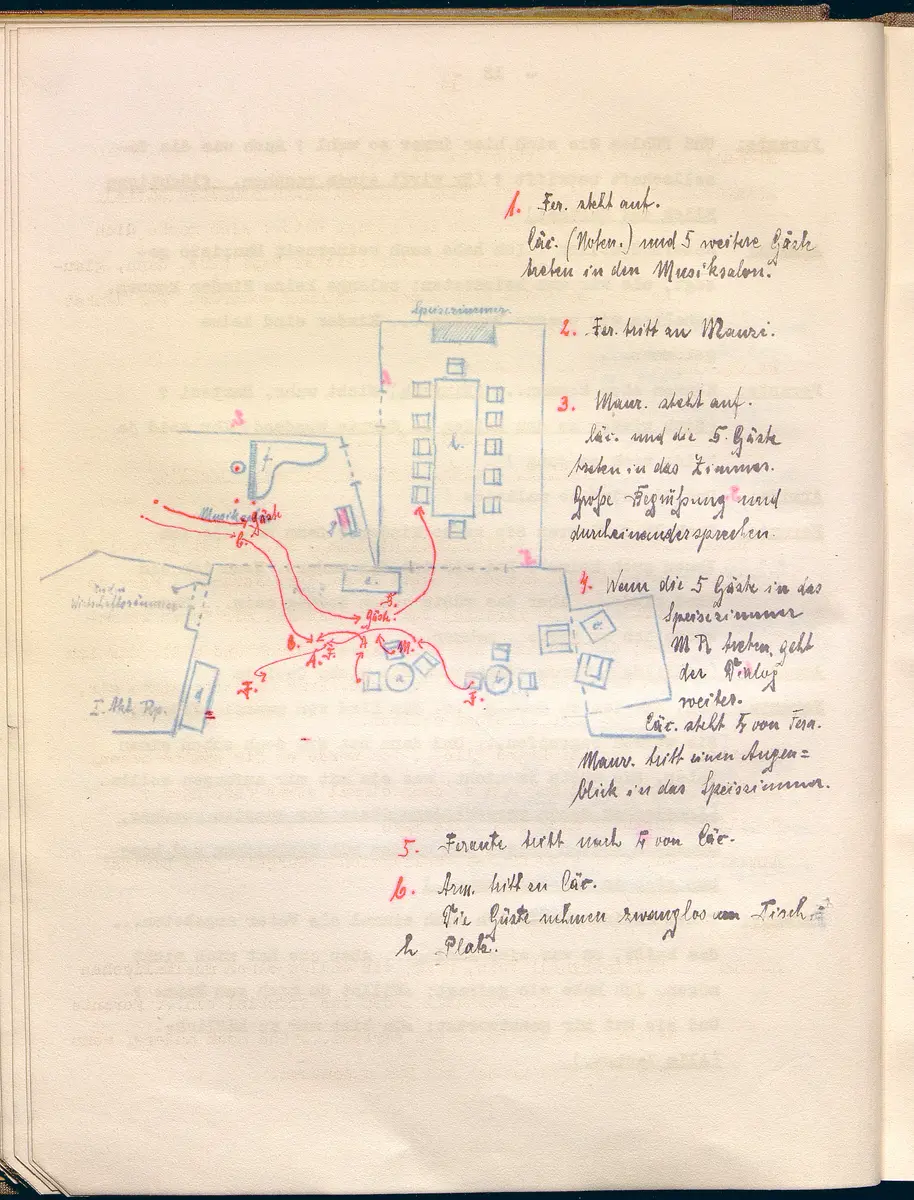 1. Fer. steht auf.
Cäc. (Noten.) und 5 weitere Gäste
treten in den Musiksalon.
Speisezimmer
2. Fer. tritt zu Mauri.
3. Maur. steht auf.
Cäc. und die 5 Gäste
treten in das Zimmer.
Große Begrüßung und
durcheinandersprechen.
4. Wenn die 5 Gäste in das
Speisezimmer
treten, geht
der Dialog
weiter.
Cäc. steht von Fera.
Maur. tritt einen Augen=
blick in das Speisezimmer.
5. Ferante tritt nach von Cäc.
6. Arm. tritt zu Cäc.
Die Gäste nehmen zwanglos am Tisch
h Platz.
f
h
Gäste
C.
e.
5.
Gäste
C.
A.
F.
A
M.
F.
F.
a
b
c
d
g
Wirtschaftsräumen
I. Akt Rp.